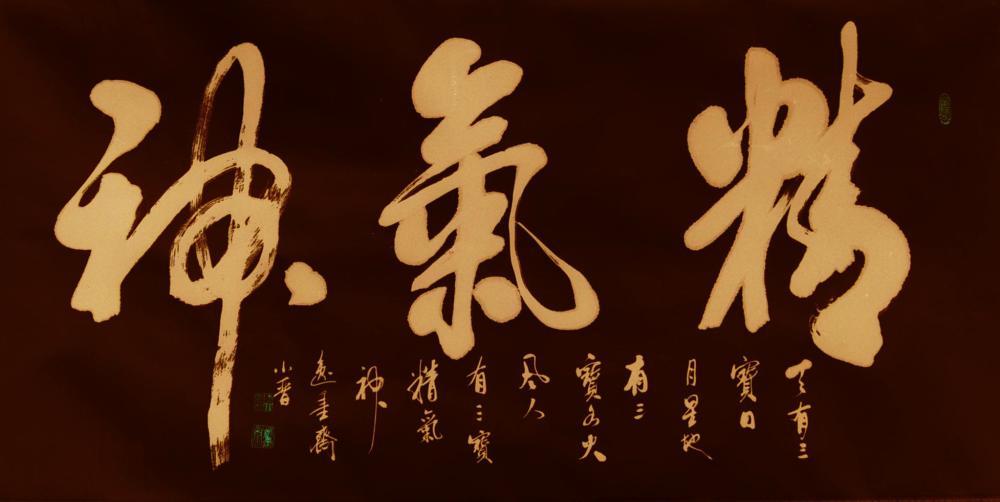 精氣神
天有三
寶日
月星地
有三
寶水火
風人
有三寶
精氣
神
齋
小